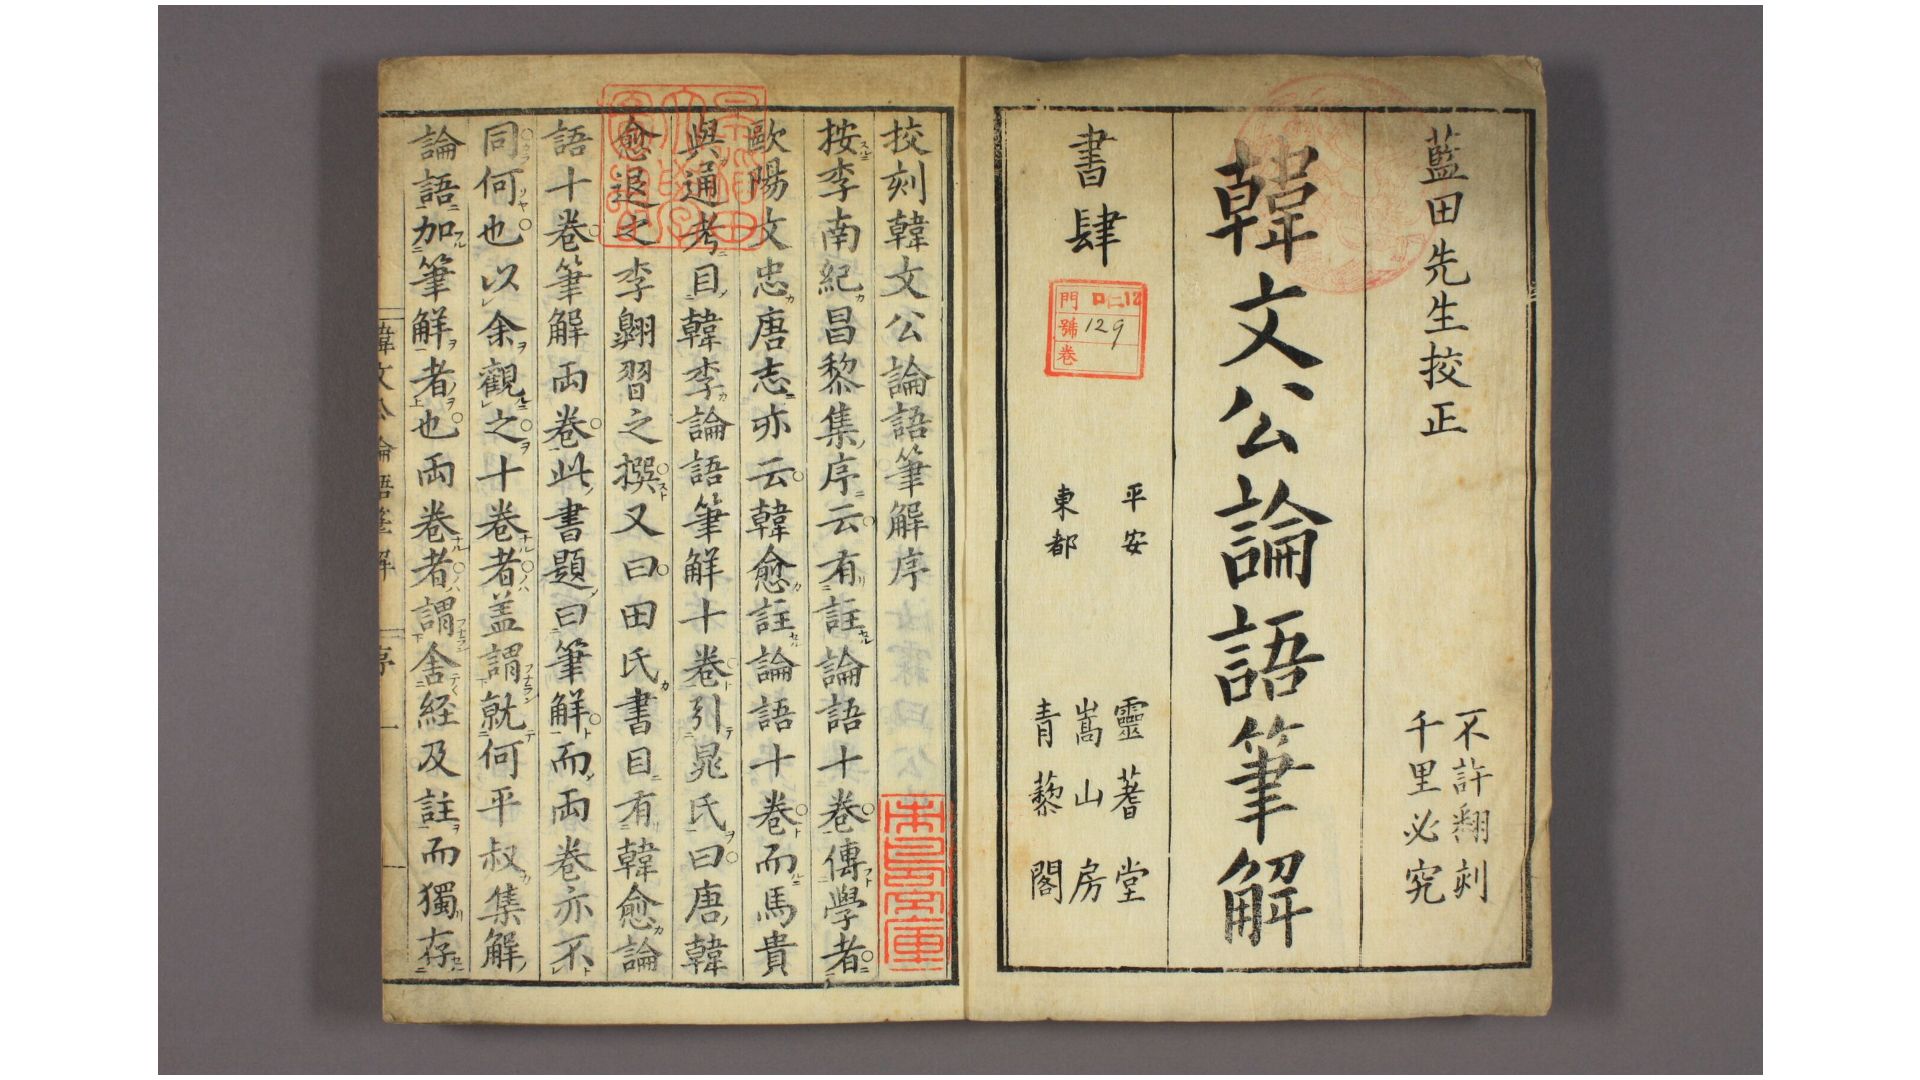 藍田先生挍正
不許翻刻
千里必究
韓文公論語筆解
書肆
平安
東都
靈蓍堂
嵩山房
青藜閣
門 ロ仁12
號 129
卷
挍刻韓文公論語筆解序
按李南紀昌黎集序云有註論語十卷傳學者
歐陽文忠唐志亦云韓愈註論語十卷而馬貴
與通考目韓李論語筆解十卷引晁氏曰唐韓
愈退之李翺習之撰又曰田氏書目有韓愈論
語十卷筆解両卷此書題曰筆解而両卷亦不
同何也以余觀之十卷者盖謂就何平叔集解
論語加筆解者也両卷者謂舍経及註而獨存
韓文公論語筆解 序 一